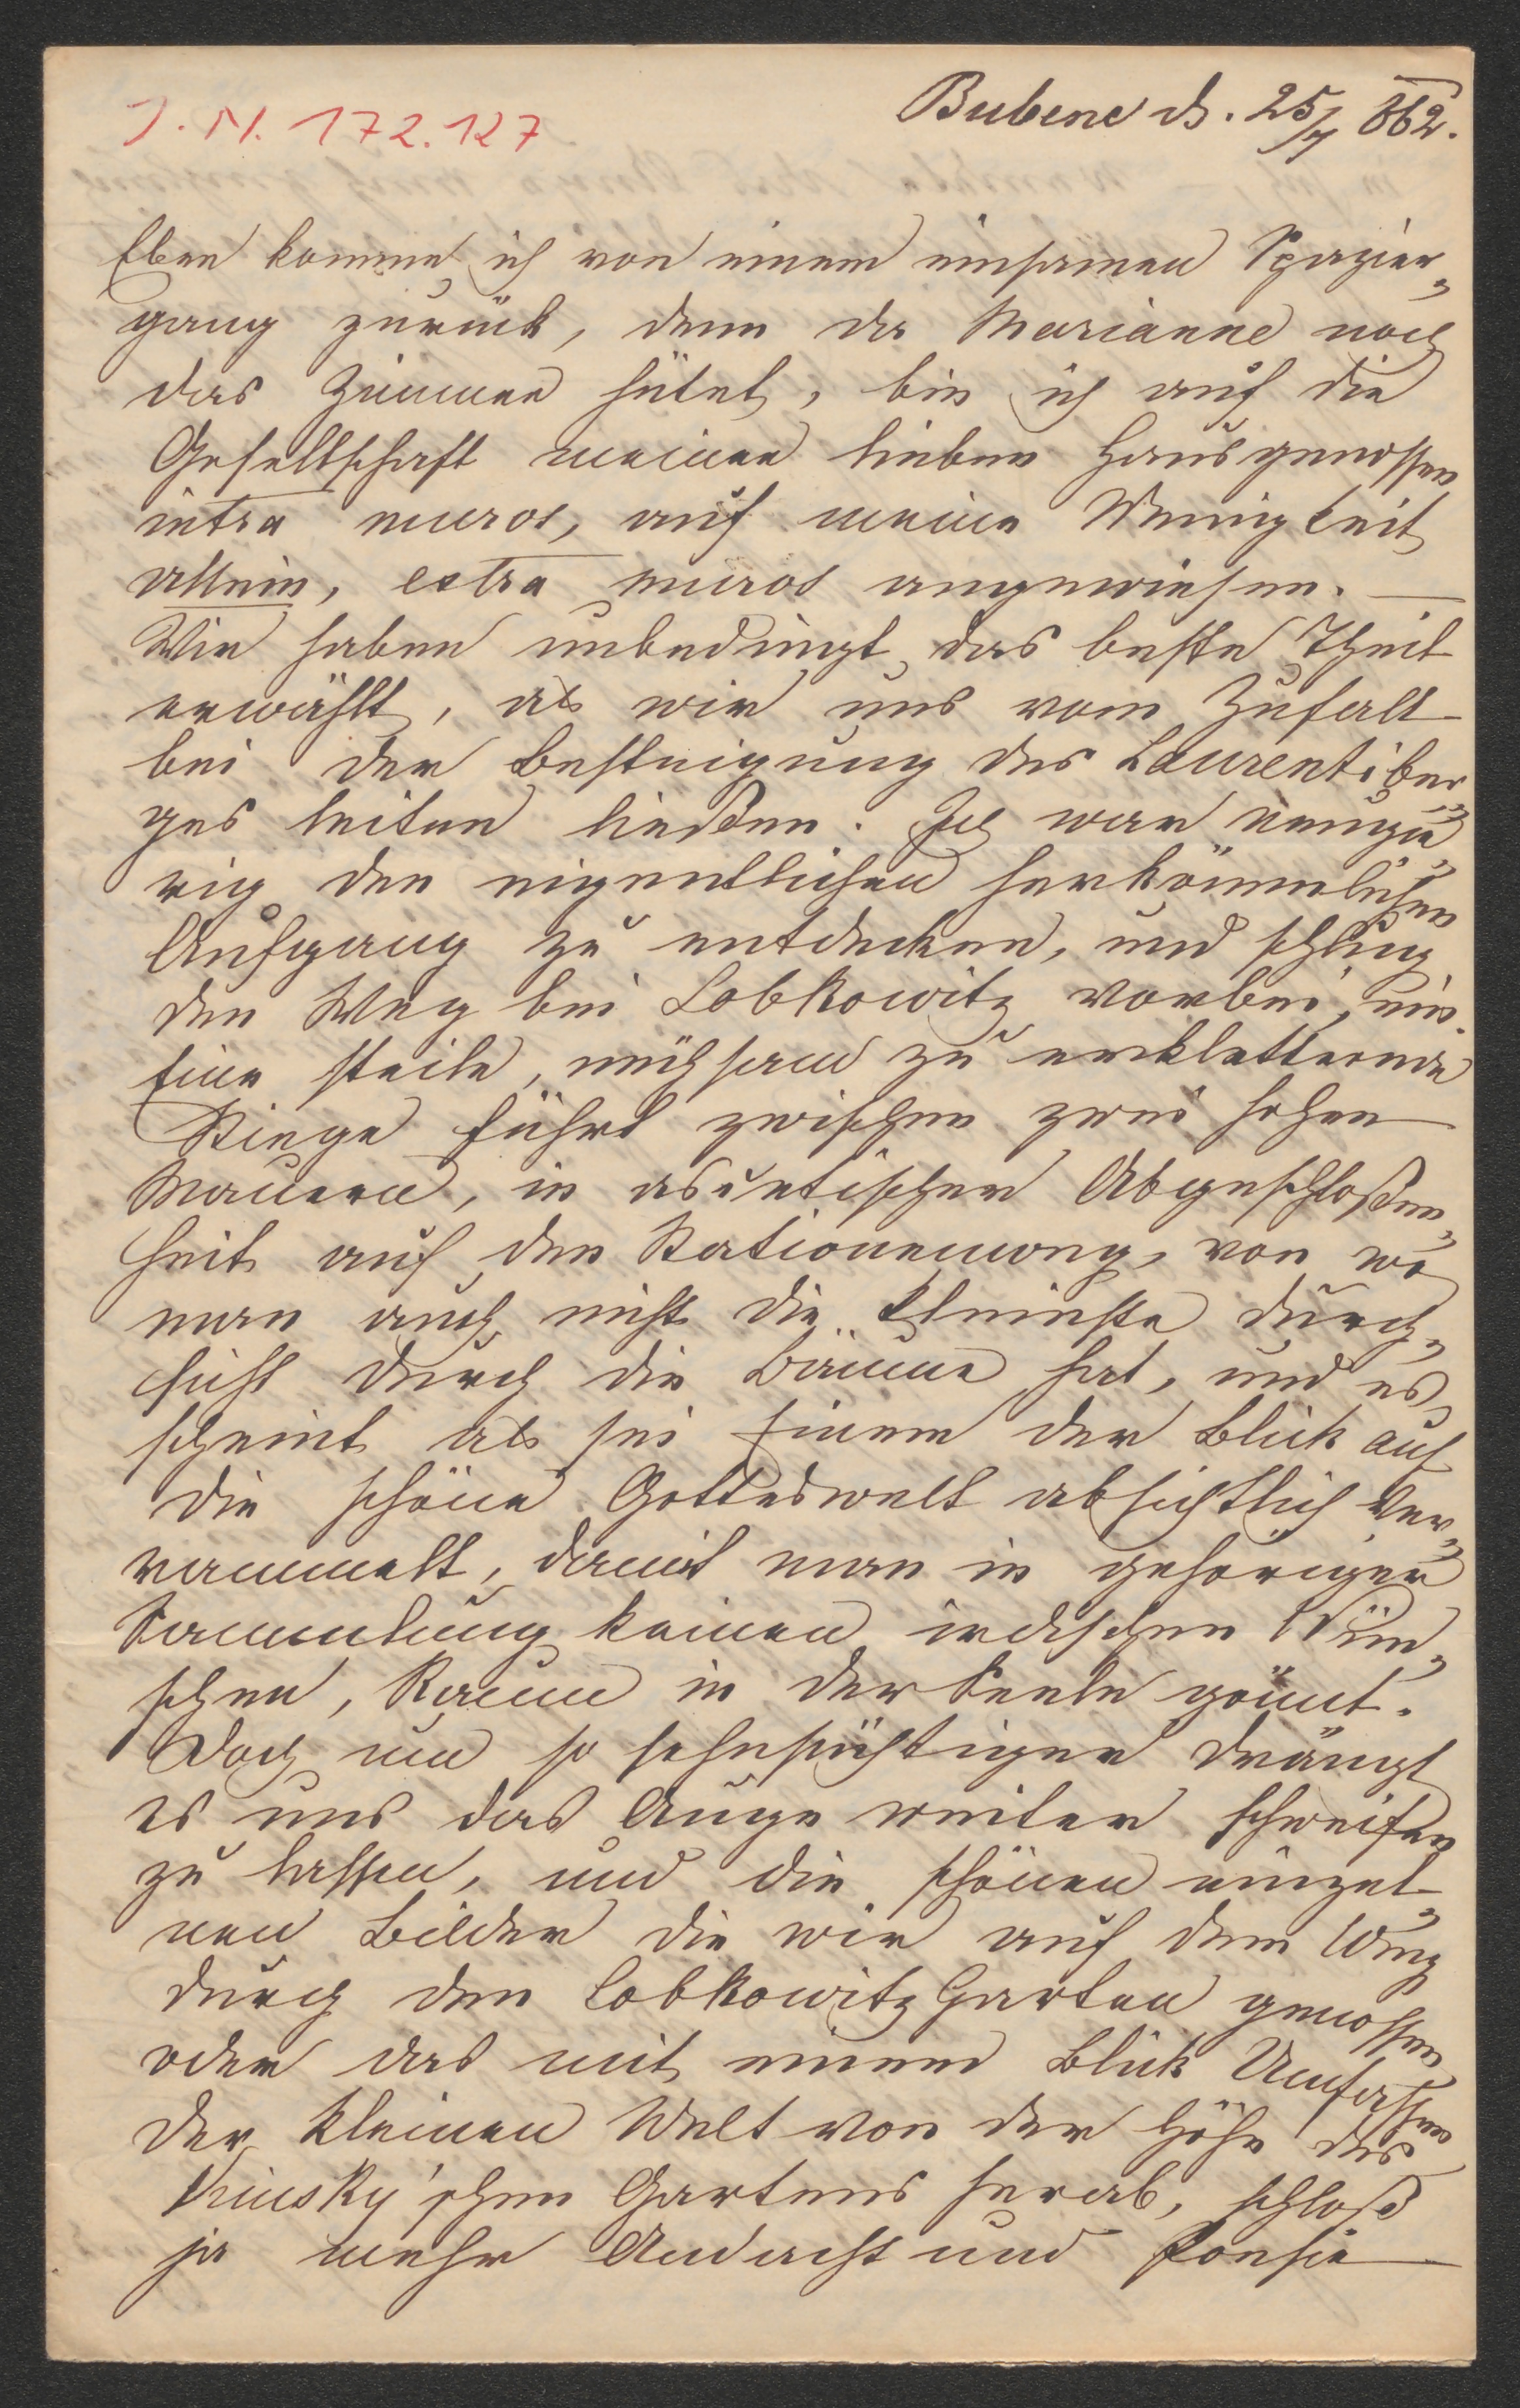 J. N. 172.127
Bubenc d. 25/7 862.
Eben komme ich von einem einsamen Spazier-
gang zurück, denn da Marianne noch
das Zimmer hütet, bin ich auf die
Gesellschaft meiner lieben Hausgenossen
intra muros, auf meine Wenigkeit
allein, extra muros angewiesen. —
Wir haben unbedingt das beste Theil
erwählt, als wir uns vom Zufall
bei der Besteigung des Laurentiber-
ges leiten ließen. Ich war neugie-
rig den eigentlichen herkömmlichen
Aufgang zu entdecken, und schlug
den Weg bei Lobkowitz vorbei, ein.
Eine steile, mühsam zu erkletternde
Stiege führt zwischen zwei hohen
Mauern, in ascetischer Abgeschloßen-
heit auf den Stationenweg, von wo
man auch nicht die kleinste Durch-
sicht durch die Bäume hat, und es
scheint als sei Einem der Blick auf
die schöne Gotteswelt absichtlich ver-
rammelt, damit man in gehöriger
Sammlung keinen irdischen Wün-
schen, Raum in der Seele gönnt.
Doch um so sehnsüchtiger drängt
es uns das Auge weiter schweifen
zu lassen, und die schönen einzel-
nen Bilder die wir auf dem Weg
durch den Lobkowitz Garten genossen
oder das mit einem Blick Umfassen
der kleinen Welt von der Höhe des
Kinsky'schen Gartens herab, schloß
ja mehr Andacht und Poesie